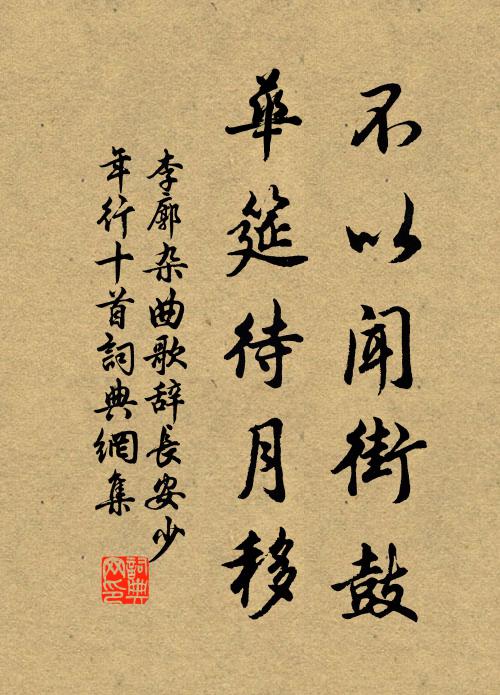 不以闻街鼓
華筵待月移
李廓杂曲歌辞長安少
年行十首詞典網集
詞典
网印